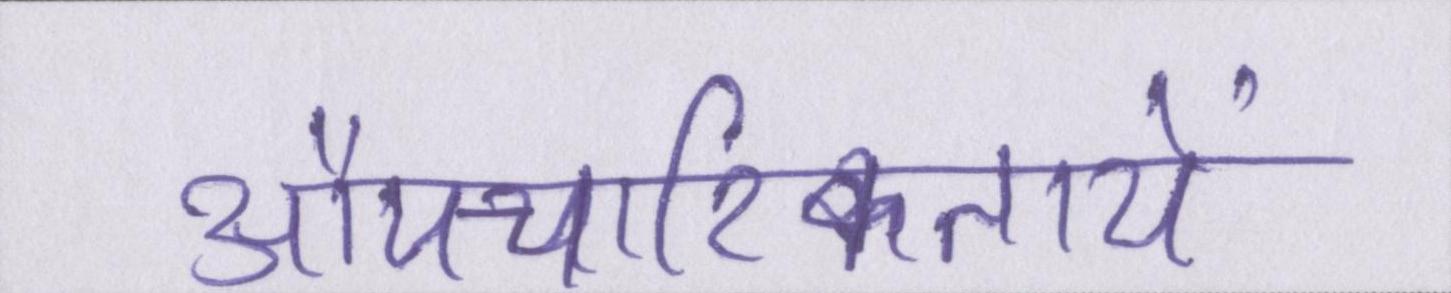 औपचारिकतायें